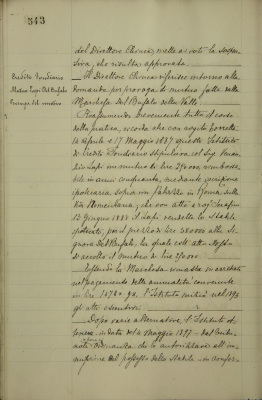 343
del Direttore Chiesa, mette ai voti la sospen-
siva, che risulta approvata.
Credito Fondiario
Mutuo Lapi Del Bufalo
Proroga del mutuo
Il Direttore Chiesa riferisce intorno alla
domanda per proroga di mutuo fatta dalla
Marchesa Del Bufalo della Valle.
Riassumendo brevemente tutto il corso
della pratica, ricorda che con rogito
14 Aprile e 17 Maggio 1887 questo Istituto
di Credito Fondiario stipulava col Sig.
Lapi un mutuo di lire 270000 ammortiz-
zabile in anni cinquanta, mediante iscrizione
ipotecaria sopra un fabbricato in Roma, nella
Via Nomentana; che con atto
13 Giugno 1888 il Lapi vendette lo stabile
ipotecato, per il prezzo di lire 380000 alla Si-
gnora Del Bufalo, la quale coll'atto stesso
si accollò il mutuo di lire 270000.
Essendo la Marchesa rimasta in arretrato
nel pagamento delle annualità consistente
in lire l'Istituto iniziò nel 1896
gli atti esecutivi.
Dopo varie alternative, l'Istituto
in data del 4 Maggio 1897
che lo autorizzava all'im-
missione del possesso dello stabile - in confor-